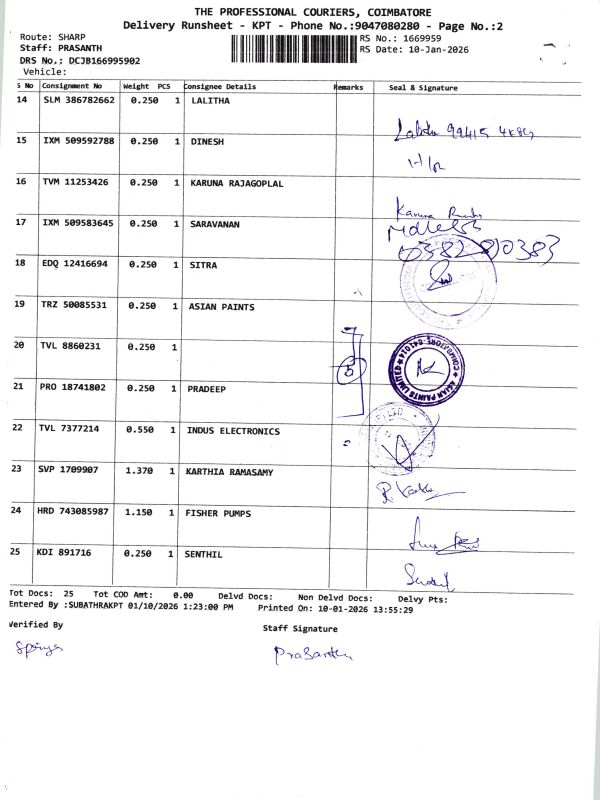 THE PROFESSIONAL COURIERS, COIMBATORE
Delivery Runsheet - KPT - Phone No.:9047080280 - Page No.:2
Route: SHARP
RS No.: 1669959
Staff: PRASANTH
RS Date: 10-Jan-2026
DRS No.: DCJB166995902
Vehicle:
S No Consignment No Weight PCS Consignee Details Remarks Seal & Signature
14 SLM 386782662 0.250 1 LALITHA
Lalitha 99415 4889
15 IXM 509592788 0.250 1 DINESH
H/R
16 TVM 11253426 0.250 1 KARUNA RAJAGOPLAL
Karuna
17 IXM 509583645 0.250 1 SARAVANAN
18 EDQ 12416694 0.250 1 SITRA
19 TRZ 50085531 0.250 1 ASIAN PAINTS
20 TVL 8860231 0.250 1
5
ASIAN PAINTS LIMITED ★ COIMBATORE-641014 ★
21 PRO 18741802 0.250 1 PRADEEP
22 TVL 7377214 0.550 1 INDUS ELECTRONICS
23 SVP 1709907 1.370 1 KARTHIA RAMASAMY
24 HRD 743085987 1.150 1 FISHER PUMPS
25 KDI 891716 0.250 1 SENTHIL
Senthil
Tot Docs: 25 Tot COD Amt: 0.00 Delvd Docs: Non Delvd Docs: Delvy Pts:
Entered By :SUBATHRAKPT 01/10/2026 1:23:00 PM Printed On: 10-01-2026 13:55:29
Verified By
Staff Signature
Prasanth